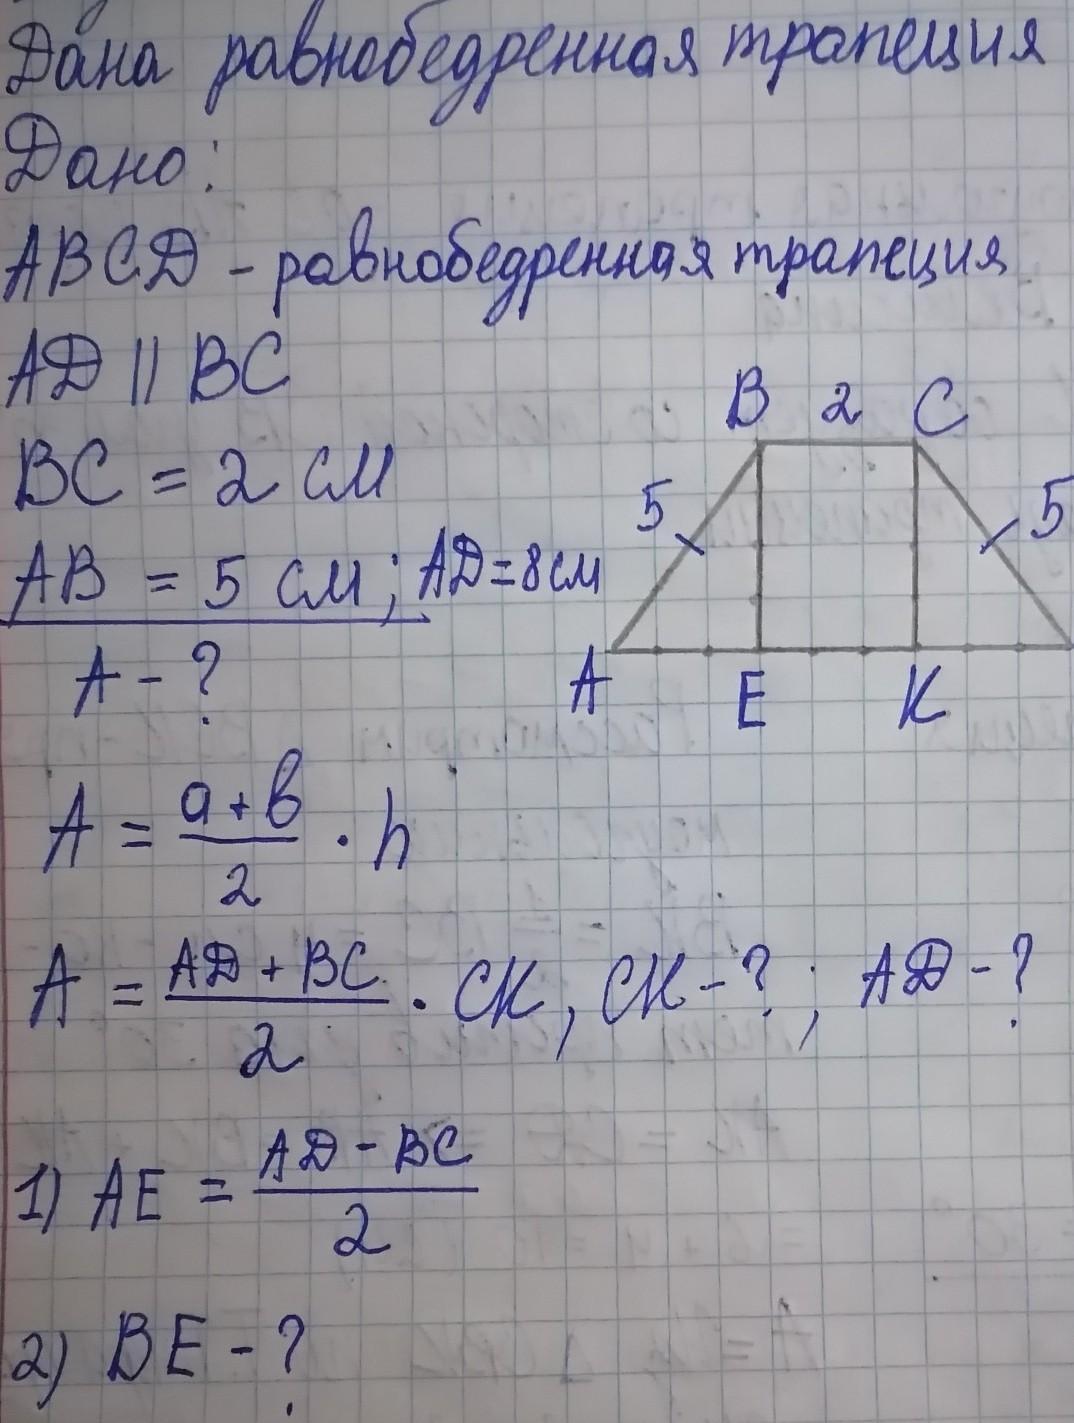 Дана равнобедренная трапеция
Дано:
ABCD - равнобедренная трапеция
AD || BC
BC = 2 см
AB = 5 см; AD = 8 см
A - ?
B 2 C
5 5
A E K
A = (a + b)/2 · h
A = (AD + BC)/2 · CK, CK - ?; AD - ?
1) AE = (AD - BC)/2
2) BE - ?